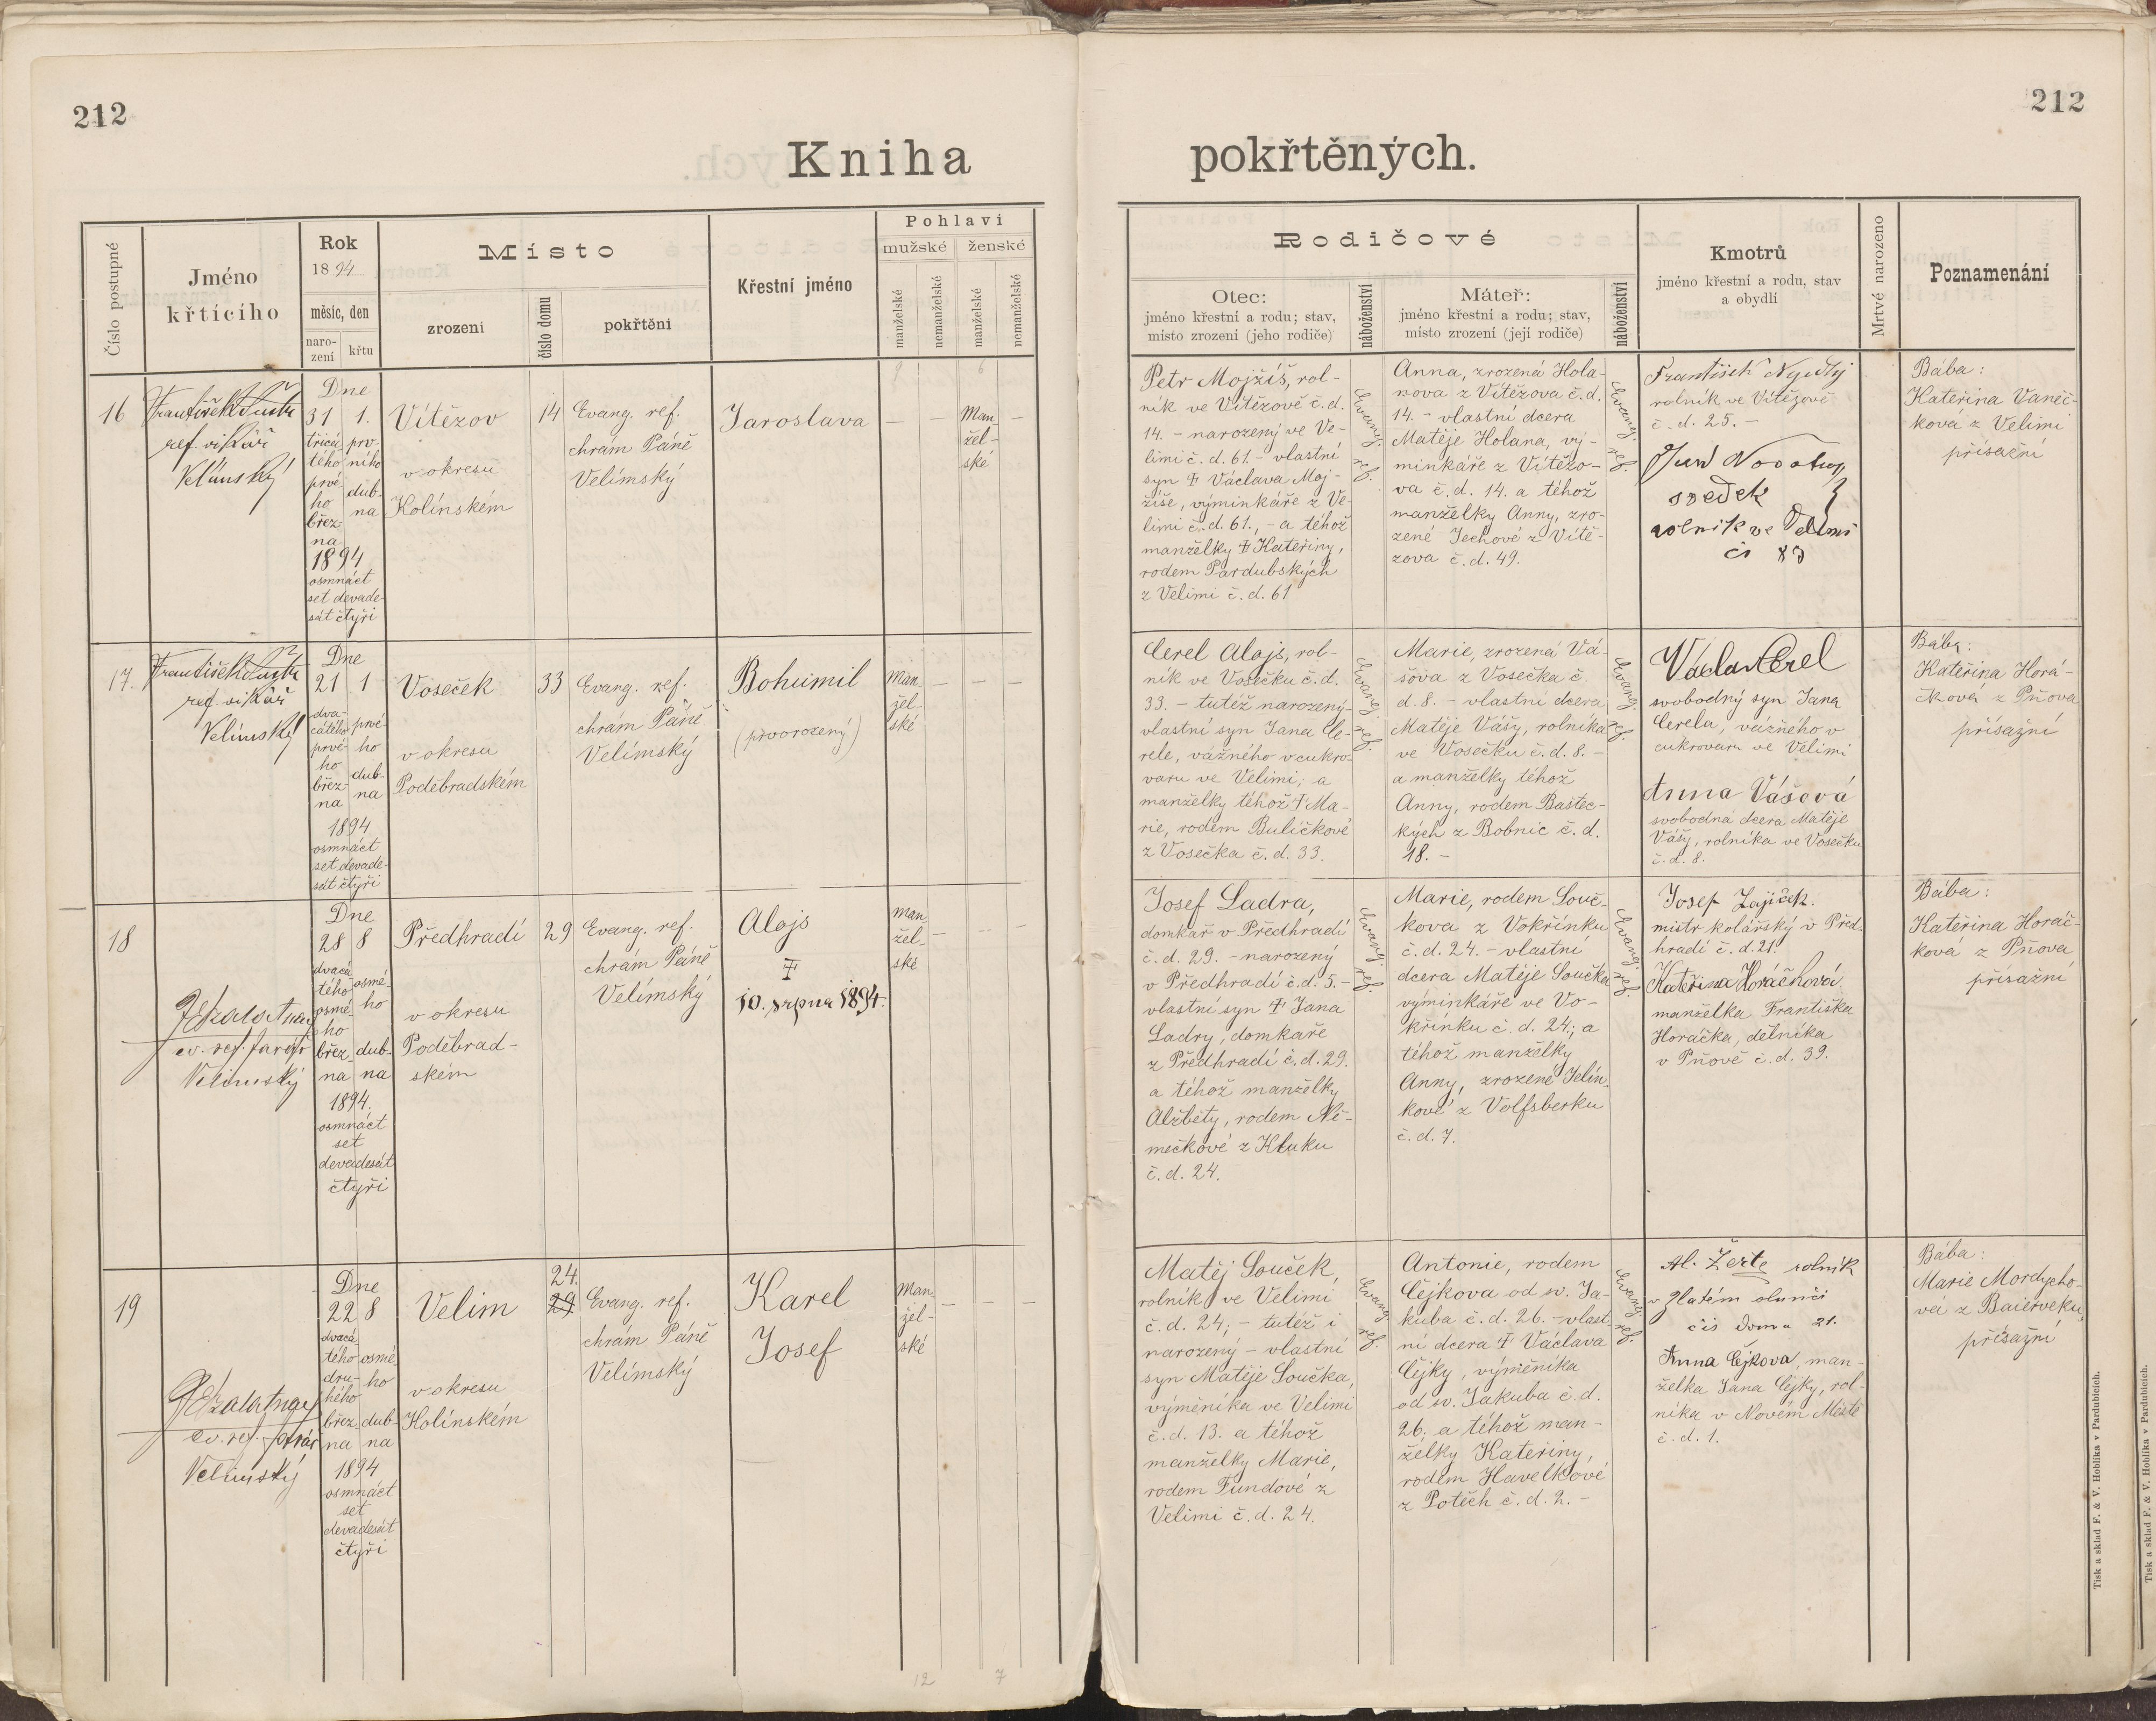 212
212
Kniha
pokřtěných.
Číslo postupné
Jméno
křtícího
Rok
1894
měsíc, den
naro-
zení
křtu
Místo
zrození
číslo domu
pokřtěni
Křestní jméno
Pohlaví
mužské
ženské
manželské
nemanželské
manželské
nemanželské
Rodičové
Otec:
jméno křestní a rodu; stav,
místo zrození (jeho rodiče)
náboženství
Máteř:
jméno křestní a rodu; stav,
místo zrození (její rodiče)
náboženství
Kmotrů
jméno křestní a rodu, stav
a obydlí
Mrtvé narozeno
Poznamenání
16
František
ref. vikář
Velímský
Dne
31 1.
třicá- prv-
tého ního
prvé- dub-
ho na
břez-
na
1894
osmnáct
set devade-
sát čtyři
Vítězov
v okresu
Kolínském
14
Evang. ref.
chrám Páně
Velímský
Jaroslava
—
—
Man
žel-
ské
—
Petr Mojžíš, rol-
ník ve Vítězově č. d.
14. - narozený ve Ve-
limi č. d. 61. - vlastní
syn † Václava Moj-
žíše, výminkáře z Ve-
limi č. d. 61., - a téhož
manželky † Kateřiny,
rodem Pardubských
z Velimi č. d. 61
Evang. ref.
Anna, zrozená Hola-
nova z Vítězova č. d.
14. - vlastní dcera
Matěje Holana, vý-
minkáře z Vítězo-
va č. d. 14. a téhož
manželky Anny, zro-
zené Jechové z Vítě-
zova č. d. 49.
Evang. ref.
František Nejedlý
rolník ve Vítězově
č. d. 25. -
svedek
rolnik ve Velimi
čs 83
Bába:
Kateřina Vaněč-
ková z Velimi
přísažní
17.
František
ref. vikář
Velímský
Dne
21 1
dva-
cátého prvé-
prvé- ho
ho dub-
břez- na
na
1894
osmnáct
set devade-
sát čtyři
Voseček
v okresu
Poděbradském
33
Evang. ref.
chrám Páně
Velímský
Bohumil
(prvorozený)
Man
žel-
ské
— — —
Cerel Alojs, rol-
ník ve Vosečku č. d.
33. - tutéž narozený -
vlastní syn Jana Ce-
rele, vážného v cukro-
varu ve Velimi; a
manželky téhož † Ma-
rie, rodem Buličkové
z Vosečka č. d. 33.
Evang. ref.
Marie, zrozená Vá-
šova z Vosečka č.
d. 8. - vlastní dcera
Matěje Vášy, rolníka
ve Vosečku č. d. 8. -
a manželky téhož
Anny, rodem Bastec-
kých z Bobnic č. d.
18. -
Evang. ref.
Václav Cerel
svobodný syn Jana
Cerela, vážného v
cukrovaru ve Velimi
Anna Vášová
svobodná dcera Matěje
Vášy, rolníka ve Vosečku
č. d. 8.
Bába:
Kateřina Horá-
čková z Pňova
přísažní
18
ev. ref. farář
Velimský
Dne
28 8
dvacá-
tého osmé-
osmé- ho
ho
břez- dub-
na na
1894.
osmnáct
set
devadesát
čtyři
Předhradí
v okresu
Poděbrad-
ském
29
Evang. ref.
chrám Páně
Velímský
Alojs
†
10. srpna 1894.
Man
žel-
ské
— — —
Josef Ladra,
domkař v Předhradí
č. d. 29. - narozený
v Předhradí č. d. 5. -
vlastní syn † Jana
Ladry, domkaře
z Předhradí č. d. 29.
a téhož manželky
Alžběty, rodem Ně-
mečkové z Kluku
č. d. 24.
Evang. ref.
Marie, rodem Souč-
kova z Vokřínku
č. d. 24. - vlastní
dcera Matěje Součka
výminkáře ve Vo-
křínku č. d. 24; a
téhož manželky
Anny, zrozené Jelín-
kové z Volfsberku
č. d. 7.
Evang. ref.
Josef Zajíček.
mistr kolářský v Před-
hradí č. d. 21.
Kateřina Horáčková.
manželka Františka
Horáčka, dělníka
v Pňově č. d. 39.
Bába:
Kateřina Horáč-
ková z Pňova
přísažní
19
ev. ref. farář
Velimský
Dne
22 8
dvacá-
tého osmé-
dru- ho
hého
břez- dub-
na na
1894
osmnáct
set
devadesát
čtyři
Velim
v okresu
Kolínském
24.
29
Evang. ref.
chrám Páně
Velímský
Karel
Josef
Man
žel-
ské
— — —
Matěj Souček,
rolník ve Velimi
č. d. 24; - tutéž i
narozený - vlastní
syn Matěje Součka,
výměníka ve Velimi
č. d. 13. a téhož
manželky Marie,
rodem Fundové z
Velimi č. d. 24.
Evang. ref.
Antonie, rodem
Čejkova od sv. Ja-
kuba č. d. 26. - vlast-
ní dcera † Václava
Čejky, výměníka
od sv. Jakuba č. d.
26. a téhož man-
želky Kateřiny,
rodem Havelkové
z Potěch č. d. 2. -
Evang. ref.
Al. Žerte rolník
v Zlatém slunci
čís domu 21.
Anna Čejkova, man-
želka Jana Čejky, rol-
níka v Novém Městě
č. d. 1.
Bába:
Marie Mordycho-
vá z Baierveku,
přísažní
12
7
Tisk a sklad F. & V. Hoblíka v Pardubicích.
Tisk a sklad F. & V. Hoblíka v Pardubicích.